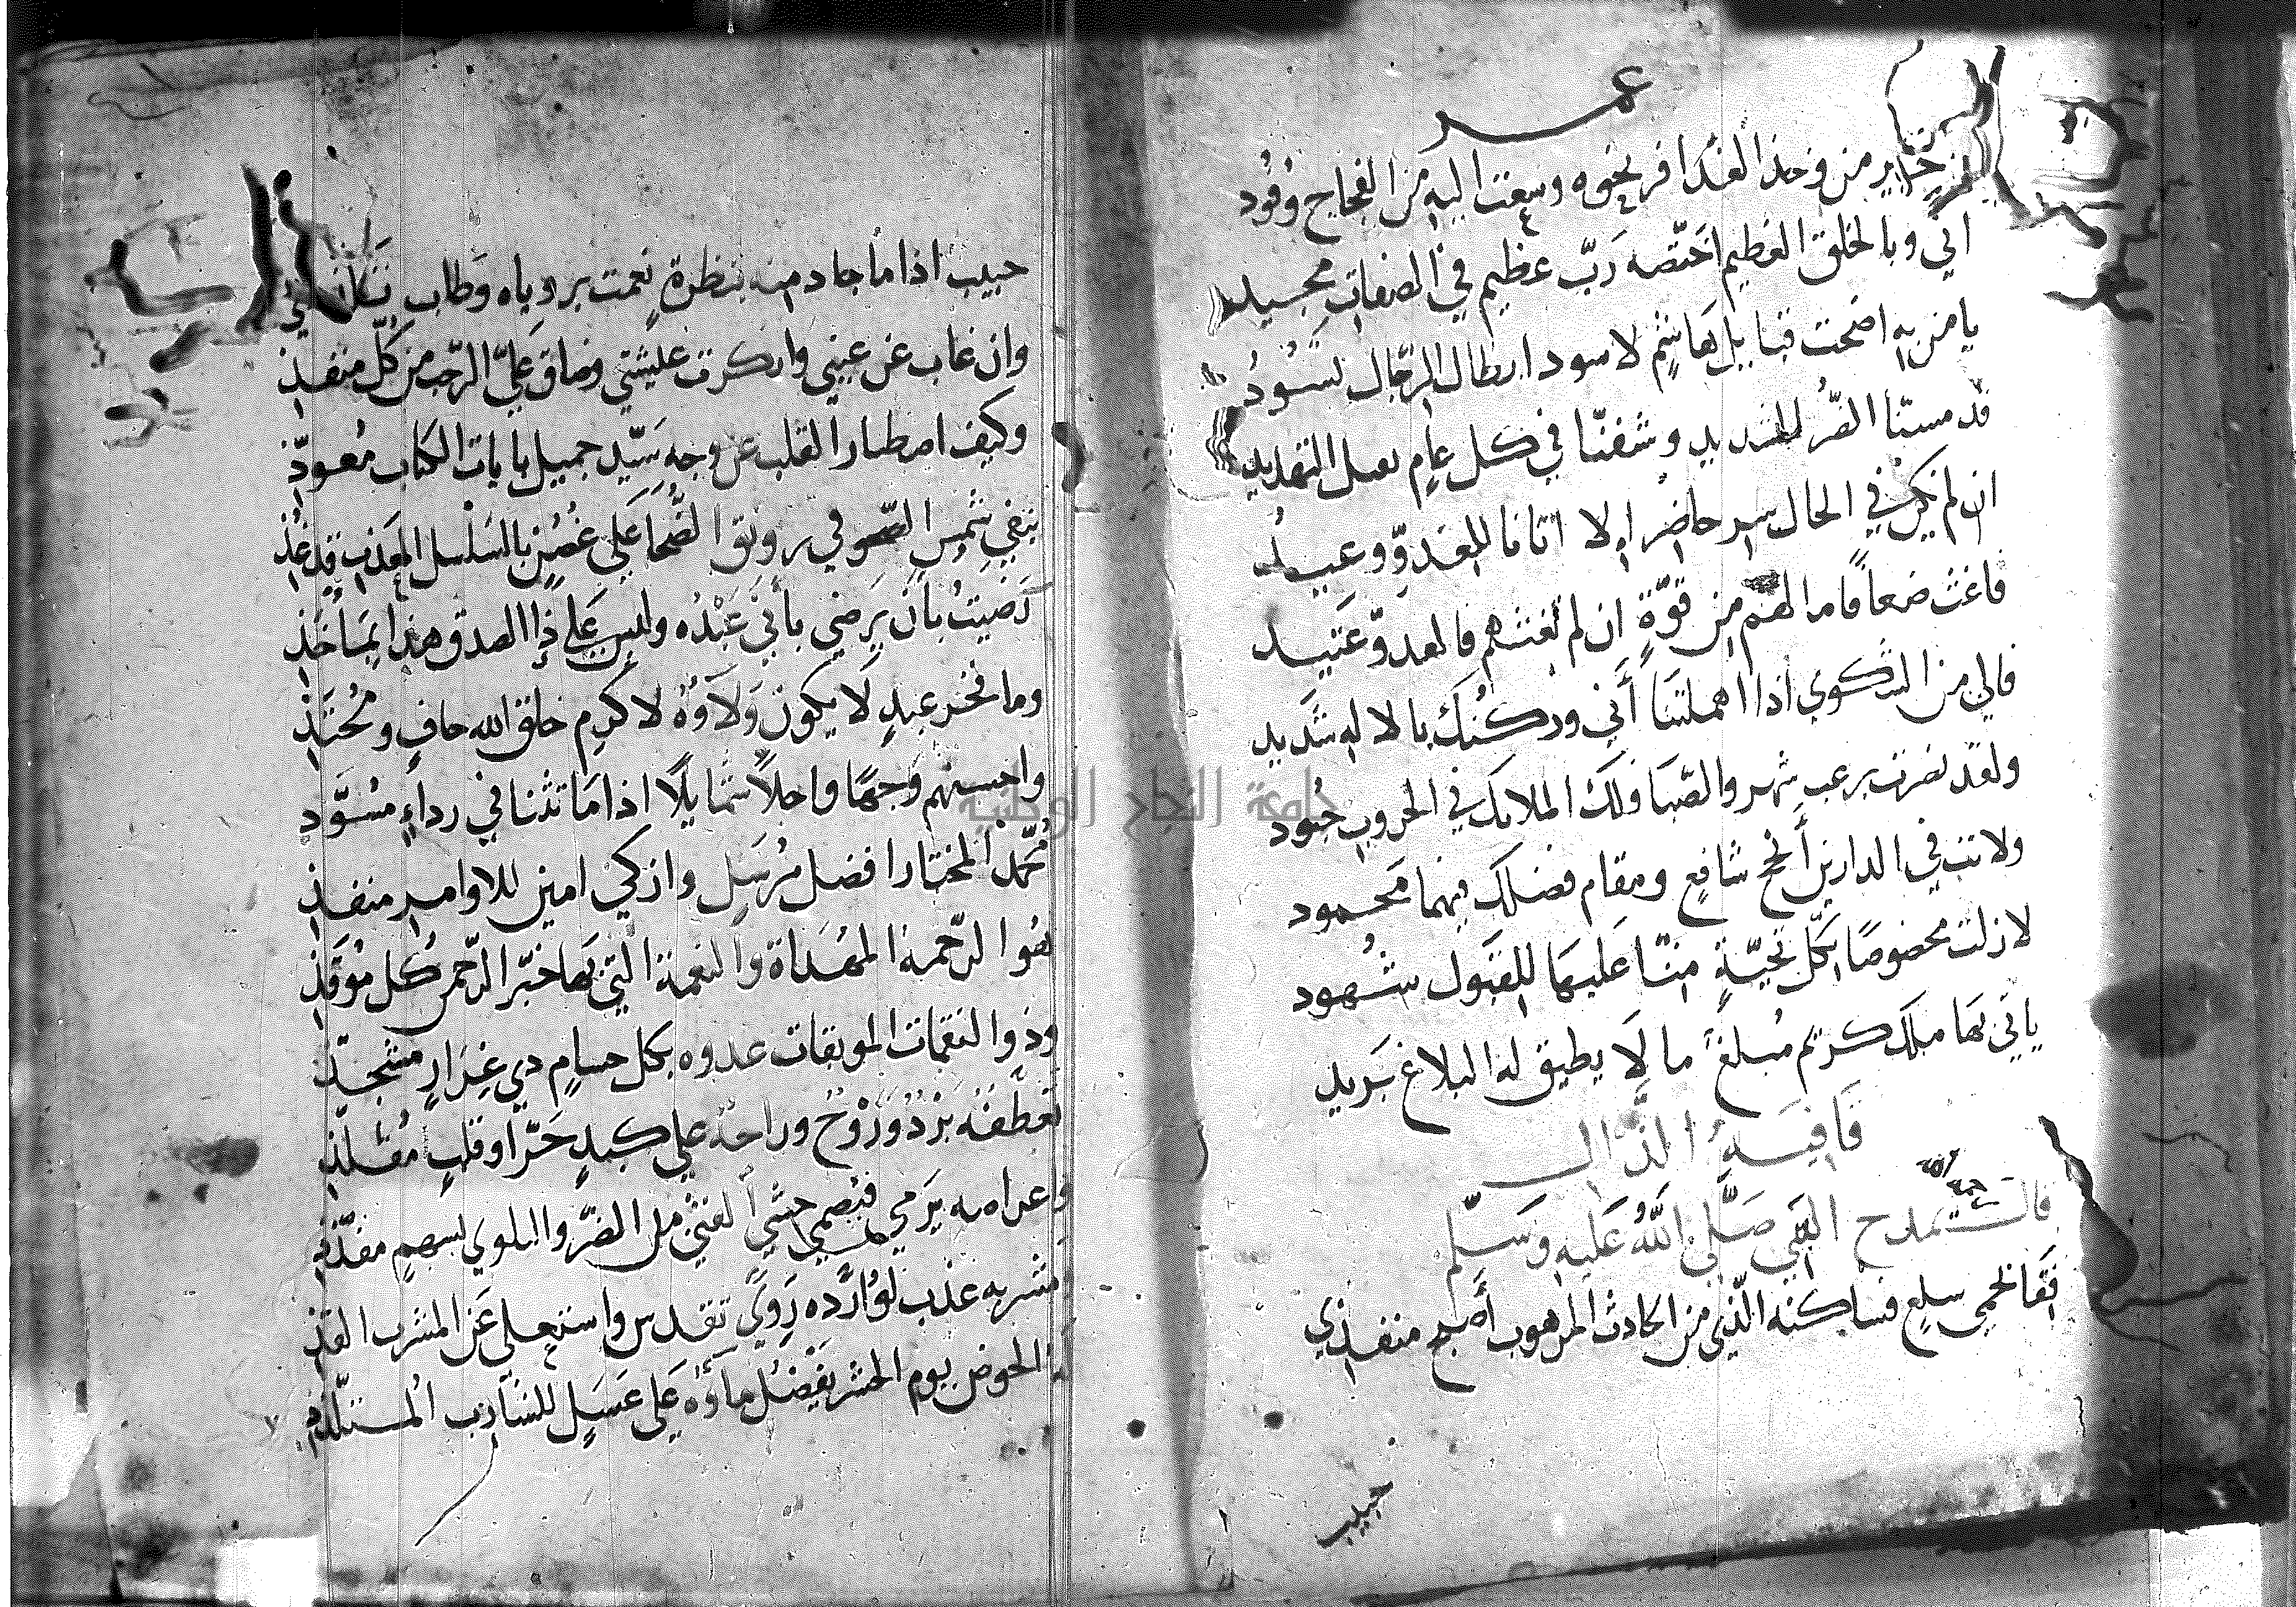 عمر
خير من وخذ العذافر نحوه وسعت اليه من الفجاج وفود
اني وبالخلق العظيم اختصه رب عظيم في الصفات مجيد
يا من به اضحت قبايل هاشم لاسود ابطال الرجال تسود
قد مسنا الضر الشديد وشفنا في كل عام بعد التهديد
ان لم تكن في الحال سر حاضرا ولا اتانا للعدو وعيد
فاغث ضعافا مالهم من قوة ان لم تغثهم فالعدو عتيد
فالي من الشكوي اذا اهملتنا أني وركنك بالاله شديد
ولقد نصرت برعب شهر والصبا ولك الملايك في الحروب جنود
ولانت في الدارين أنجح شافع ومقام فضلك فيهما محمود
لازلت مخصوصا بكل تحية منا عليها للقبول شهود
ياتي بها ملك كريم مبلغ ما لا يطيق له البلاغ بريد
قافيه الذال
قال يمدح النبي صلى الله عليه وسلم
قفا بحمي سلع فساكنه الذي من الحادث المرهوب أصبح منقذي
حبيب
حبيب اذا ما جاد منه بنظرة نعمت برؤياه وطاب
وان غاب عن عيني وادكرت عليشتي وضاق علي الرحب من كل منفذ
وكيف اصطبار القلب عن وجه سيد جميل بايات الكتاب معوذ
شمس الصحو في رونق الضحا علي غصن بالسلسل العذب قد غذي
رضيت بان يرضي بأني عبده وليس علي ذا الصدق هذا بمأخذ
وما فخر عبد لا يكون ولاؤه لاكرم خلق الله حاف ومحتذ
واحسنهم وجها واحلا شمايلا اذا ما تثنا في رداء مسود
محمد المختار افضل مرسل وازكي امين للاوامر منفذ
هوا الرحمة المهداة والنعمة التي بها خبر الرحمن كل موقذ
وذوا النقمات الموبقات عدوه بكل حسام دي غرار مشحذ
تعطفه برد وروح وراحة علي كبد حرا وقلب مفلذ
واعراضه يرمي فيصمي حشي الفتي من الضر والبلوي لسهم مقذذ
ومشربه عذب لوارده روي تقدس واستعلي عن المشرب القذ
له الحوض يوم الحشر يفضل ماؤه علي عسل للشارب المستلذ